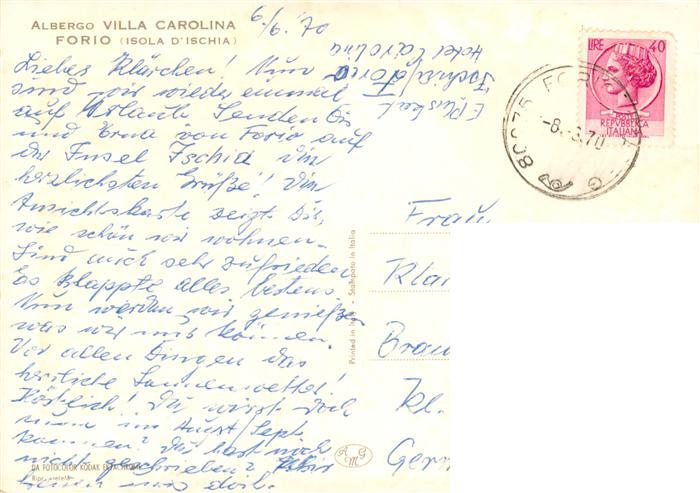 ALBERGO VILLA CAROLINA
FORIO (ISOLA D'ISCHIA)
6/6. 70
Liebes Klärchen! Nun
sind wir wieder einmal
auf Urlaub. Senden Dir
und Erna von Forio auf
der Insel Ischia die
herzlichsten Grüße! Die
Ansichtskarte zeigt Dir,
wie schön wir wohnen.
Sind auch sehr zufrieden
Es klappte alles bestens.
Nun werden wir genießen
was wir nur können.
Vor allen Dingen das
herrliche Sonnenwetter!
Köstlich! Du wirst doch
nun im August/Sept
kommen? Du hast noch
nicht geschrieben? Wir
freuen uns doch.
Ischia/Forio
Hotel Carolina
LIRE 40
POSTE
REPVBBLICA
ITALIANA
80075 FORIO
-8.-6.70
Frau
Klar
Brau
Kl.
Germ
Printed in Italy - Stampato in Italia
AGM
DA FOTOCOLOR KODAK EKTACHROME
Ripr. vietata